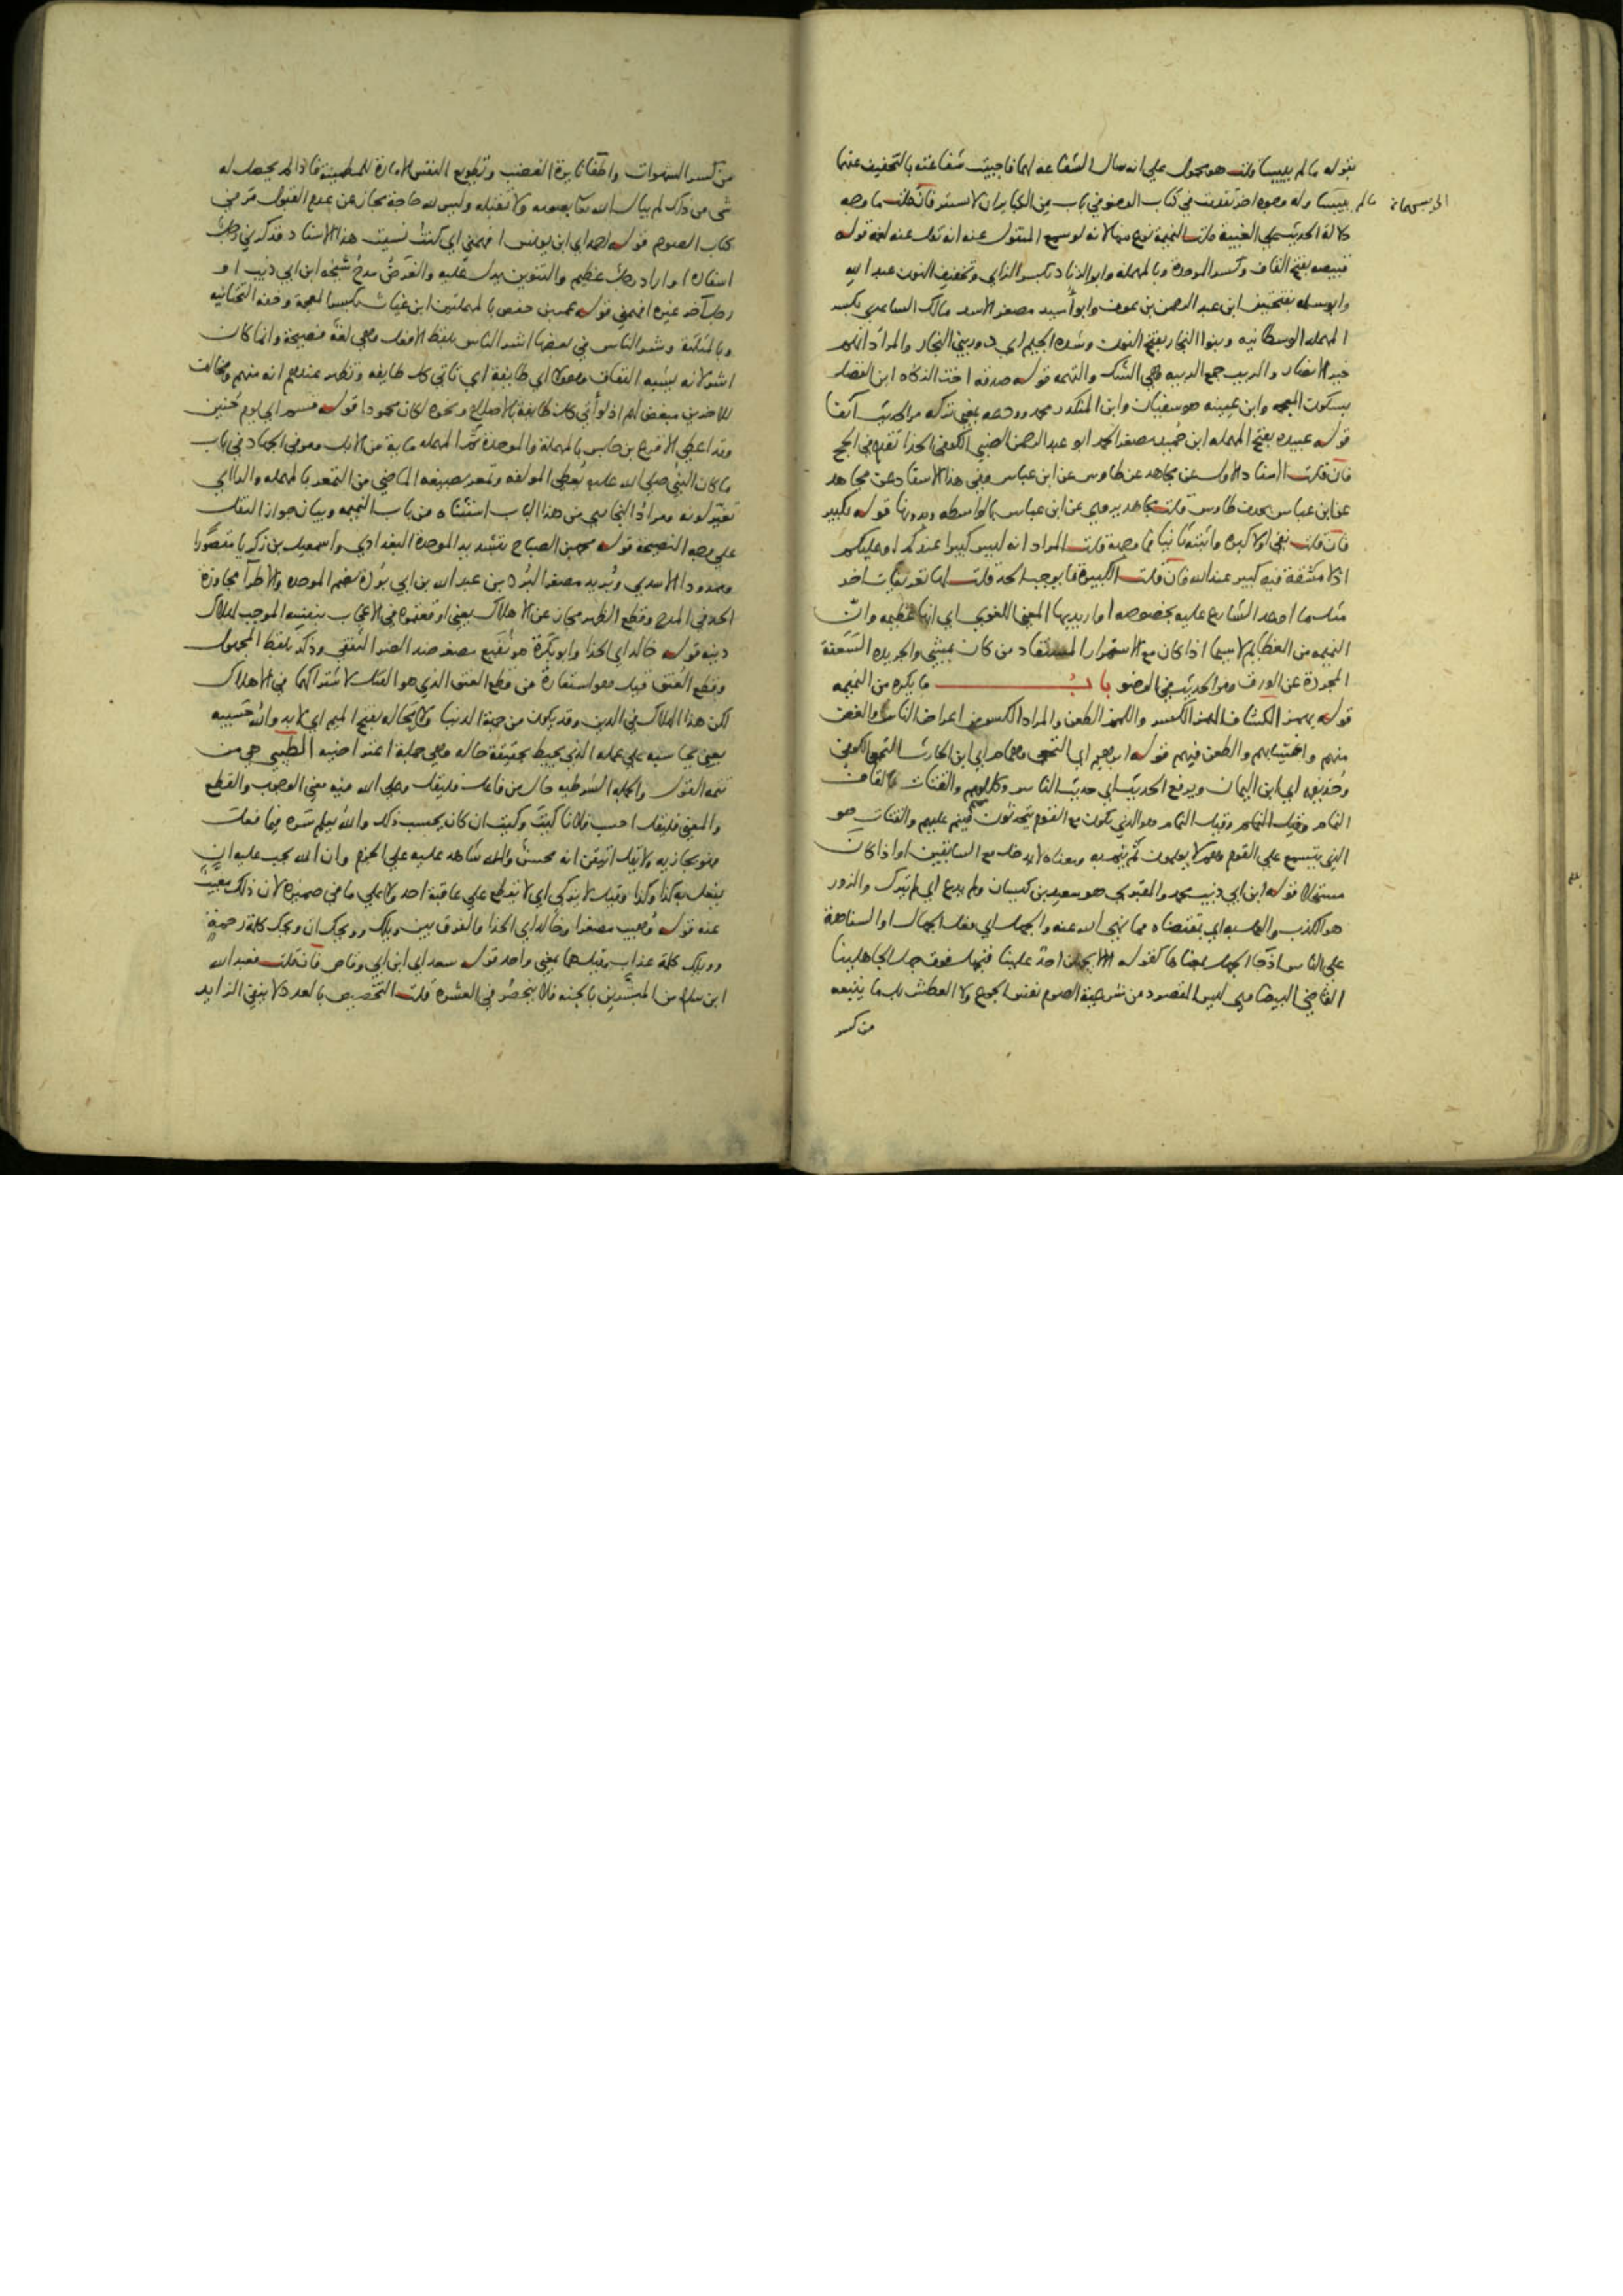 بقوله ما لم ييبسا قلت هو محمول علي انه سال الشفاعه لهما فاجيبت شفاعته بالتخفيف عنهما
ما لم ييبسا وله وجوه اخر تقدمت في كتاب الوضو في باب من الكباير ان لا يستتر فان قلت ما وجه
دلالة الحديث علي الغيبة قلت النميمة نوع منها لانه لو سمع المنقول عنه انه نقل عنه لغمه قوله
قبيصه بفتح القاف وكسر الموحدة وبالمهملة وابو الزناد بكسر الزاي وتخفيف النون عبد الله
وابو سلمه بفتحتين ابن عبد الرحمن بن عوف وابو أسيد مصغر الاسد مالك الساعدي بكسر
المهمله الوسطانيه وبنوا النجار بفتح النون وشدة الجيم اي دور بني النجار والمراد اهلهم
خير الانصار والريب جمع الريبه وهي الشك والتهمه قوله صدقه اخت الزكاه ابن الفضل
بسكون المعجمه وابن عيينه هو سفيان وابن المنكدر محمد وودعه بمعني تركه مر الحديث آنفا
قوله عبيده بفتح المهمله ابن حُميد مصغر الحمد ابو عبد الرحمن الضبي الكوفي الحذا تقدم في الحج
فان قلت الاسناد الاول عن مجاهد عن طاوس عن ابن عباس وفي هذا الاسناد عن مجاهد
عن ابن عباس بحذف طاوس قلت مجاهد يروي عن ابن عباس بالواسطه وبدونها قوله بكبير
فان قلت نفي اولا كبره واثبته ثانيا فما وجهه قلت المراد انه ليس كبيرا عندكم او عليكم
اذ لا مشقة فيه كبير عند الله فان قلت الكبيرة ما يوجب الحد قلت لها تعريفات اخر
مثل ما اوعد الشارع عليه بخصوصه او اريد بها المعني اللغوي اي انها عظيمه وان
النميمه من العظايم لا سيما اذا كان مع الاستمرار المستفاد من كان يمشي والجريده السَّعَفة
المجردة عن الورق ومر الحديث في الوضو باب ما يكره من النميمه
قوله يهمز الكشاف الهمز الكسر واللمز الطعن والمراد الكسر من اعراض الناس والغض
منهم واغتيابهم والطعن فيهم قوله ابرهيم اي النخعي وهمام اي ابن الحارث النخعي الكوفي
وحُذيفه اي ابن اليمان ويرفع الحديث اي حديث الناس وكلامهم والقتات بالقاف
النمام وقيل النمام هو الذي يكون مع القوم يتحدثون فينم عليهم والقتات هو
الذي يتسمع علي القوم وهم لا يعلمون ثم ينم به ومعناه لا يدخل مع السابقين او اذا كان
مستحلا قوله ابن ابي ذيب محمد والمقبري هو سعيد بن كيسان ولم يدع اي لم يترك والزور
هو الكذب والعمل به اي بمقتضاه مما نهي الله عنه والجهل اي فعل الجهال او السفاهة
علي الناس اذ جا الجهل بمعناها كقوله الا لا يجهلن احد علينا فنجهل فوق جهل الجاهلينا
القاضي البيضاوي ليس المقصود من شرعية الصوم نفس الجوع والعطش بل ما يتبعه
من كسر
من كسر الشهوات واطفا نايرة الغضب وتطويع النفس الامارة للمطمينة فاذا لم يحصل له
شي من ذلك لم يبال الله تعا بصومه ولا تقبله وليس لله حاجة مجاز عن عدم القبول مر في
كتاب الصوم قوله احمد اي ابن يونس افهمني اي كنت نسيت هذا الاسناد فذكرني رجل
اسناده او اراد رجل عظيم والتنوين يدل عليه والغرض مدح شيخه ابن ابي ذيب او
رجل آخر غيره افهمني قوله عمر بن حفص بالمهملتين ابن غياث بكسر المعجمة وخفه التحتانيه
وبالمثلثة وشر الناس في بعضها اشر الناس بلفظ الافعل وهي لغة فصيحة وانما كان
اشر لانه يشبه النفاق وهولا اي طايفة اي تاتي كل طايفه وتظهر عندهم انه منهم ومخالف
للاخرين مبغض لهم اذ لو أتي كل طايفة بالاصلاح ونحوه لكان محمودا قوله قسم اي يوم حُنين
وقد اعطي الاقرع بن حابس بالمهملة والموحدة ثم المهمله ماية من الابل ومر في الجهاد في باب
ما كان النبي صلي الله عليه يُعطي المولفه وتمعر بصيغه الماضي من التمعر بالمهمله والراي
تغير لونه ومراد البخاري من هذا الباب استثناه من باب النميمه وبيان جواز النقل
علي وجه النصيحة قوله محمد بن الصباح بتشديد الموحدة البغدادي واسمعيل بن زكريا مقصورا
وممدودا الاسدي وبُريد مصغر البُرد بن عبد الله بن ابي بُردة بضم الموحده والاطرآ مجاوزة
الحد في المدح وقطع الظهر مجاز عن الاهلاك يعني اوقعتموه في الاعجاب بنفسه الموجب لهلاك
دينه قوله خالد اي الحذا وابو بكرة هو نُفيع مصغر ضد الضر الثقفي وذكر بلفظ المجهول
وقطع العُنق قيل هو استعارة من قطع العنق الذي هو القتل لاشتراكهما في الاهلاك
لكن هذا الهلاك في الدين وقد يكون من جهة الدنيا ولا مَحالة بفتح الميم اي لا بد والله حَسيبه
يعني محاسبه علي عمله الذي يحيط بحقيقة حاله وهي جملة اعتراضيه الطيبي هي من
تتمه القول والجملة الشرطيه حال من فاعل فليقل وعلي الله فيه معني الوجوب والقطع
والمعني فليقل احسب فلانا كيت وكيت ان كان يحسب ذلك والله يعلم سره فيما فعل
فهو يجازيه ولا يقل اتيقن انه محسن والله شاهد عليه علي الجزم وان الله يجب عليه ان
يفعل به كذا وكذا وقيل لا يزكي اي لا يقطع علي عاقبة احد ولا علي ما في ضميره لان ذلك مغيبٌ
عنه قوله وُهيب مصغرا وخالد اي الحذا والفرق بين ويلك وويحك ان ويحك كلمة رحمة
وويلك كلمة عذاب وقيل هما بمعني واحد قوله سعد اي ابن ابي وقاص فان قلت فعبد الله
ابن سلام من المبشرين بالجنه فلا ينحصر في العشرة قلت التخصيص بالعدد لا ينفي الزايد